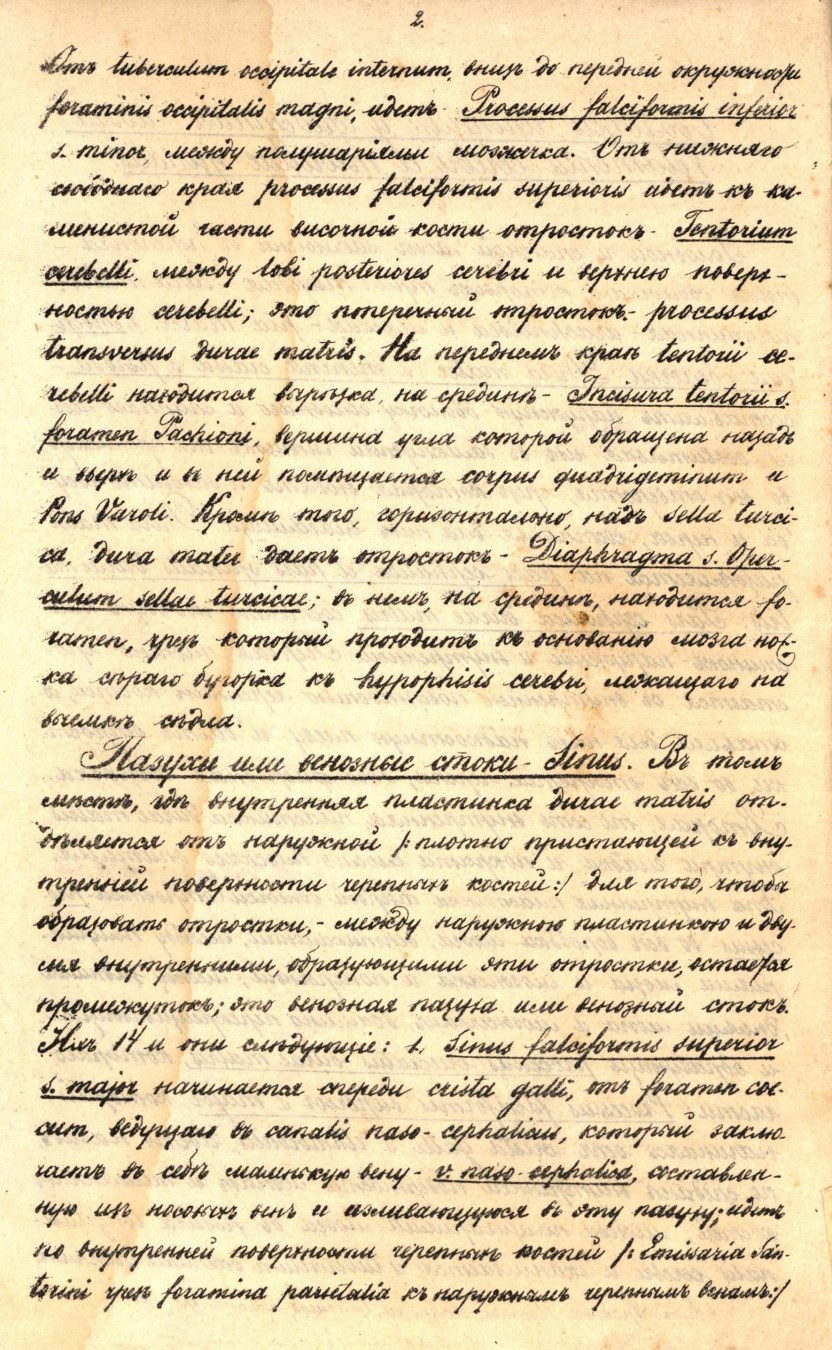 2.
Отъ tuberculum occipitale internum, внизъ до передней окружности
foraminis occipitalis magni, идетъ Processus falciformis inferior
s. minor, между полушаріями мозжечка. Отъ нижняго
свободнаго края processus falciformis superioris идетъ къ ка-
менистой части височной кости отростокъ - Tentorium
cerebelli, между lobi posteriores cerebri и верхнею поверх-
ностью cerebelli; это поперечный отростокъ - processus
transversus durae matris. На переднемъ краѣ tentorii ce-
rebelli находится вырѣзка, на срединѣ - Incisura tentorii s.
foramen Pachioni, вершина угла которой обращена назадъ
и вверхъ и въ ней помѣщается corpus quadrigeminum и
Pons Varoli. Кромѣ того, горизонтально, надъ sella turci-
ca, dura mater даетъ отростокъ - Diaphragma s. Oper-
culum sellae turcicae; въ немъ, на срединѣ, находится fo-
ramen, чрезъ который проходитъ къ основанію мозга нож-
ка сѣраго бугорка къ hypophisis cerebri, лежащаго на
выемкѣ сѣдла.
Пазухи или венозные стоки - Sinus. Въ томъ
мѣстѣ, гдѣ внутренняя пластинка durae matris от-
дѣляется отъ наружной /: плотно пристающей къ вну-
тренней поверхности черепныхъ костей :/ для того, чтобы
образовать отростки, - между наружною пластинкою и дву-
мя внутренними, образующими эти отростки, остается
промежутокъ; это венозная пазуха или венозный стокъ.
Ихъ 14 и они слѣдующіе: 1. Sinus falciformis superior
s. major начинается спереди crista galli, отъ foramen coe-
cum, ведущаго въ canalis naso-cephalicus, который заклю-
чаетъ въ себѣ маленькую вену - v. naso-cephalica, составлен-
ную изъ носовыхъ венъ и изливающуюся въ эту пазуху; идетъ
по внутренней поверхности черепныхъ костей /: Emissaria San-
torini чрезъ foramina parietalia къ наружнымъ черепнымъ венамъ :/